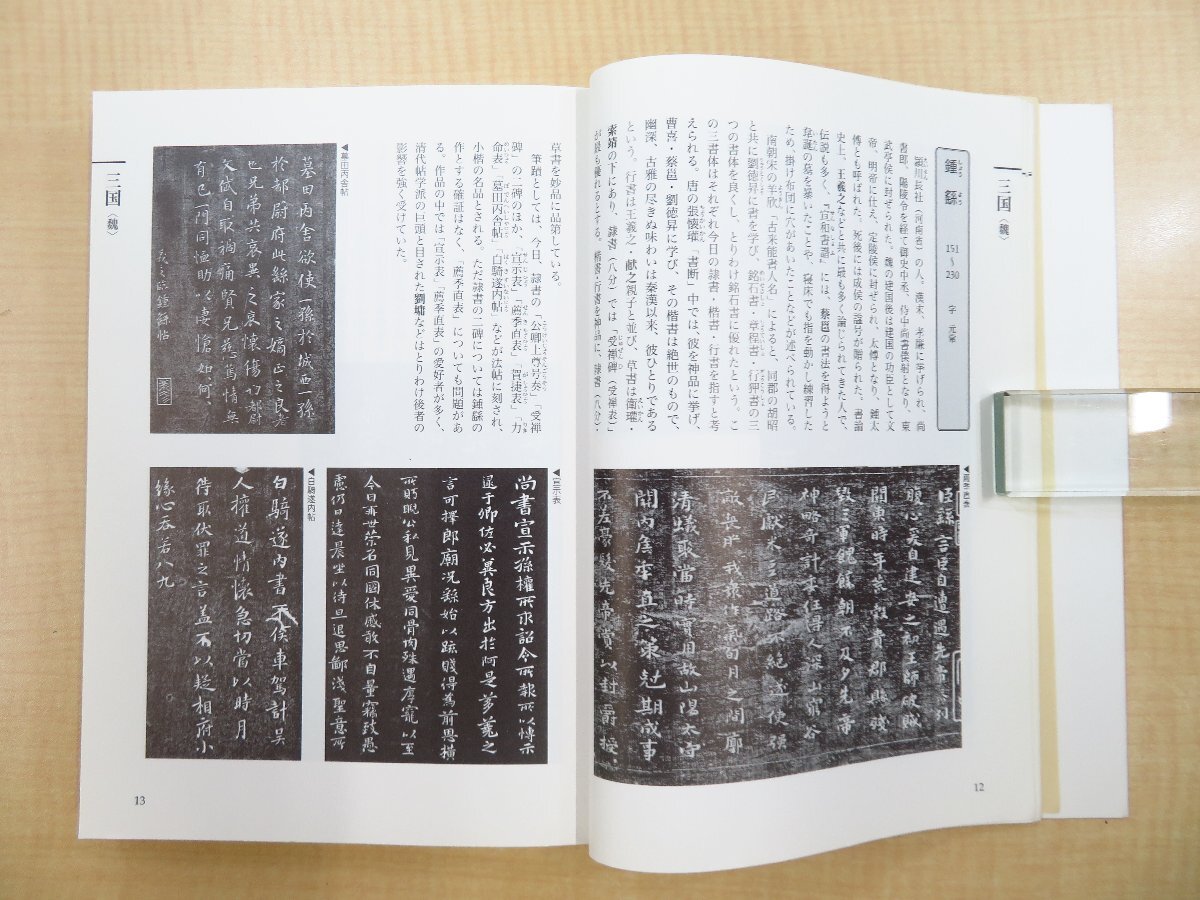 三国〈魏〉
鍾繇
しょう よう
151〜230
字 元常
潁川長社(河南省)の人。漢末、孝廉に挙げられ、尚
書郎、陽陵令を経て御史中丞、侍中尚書僕射となり、東
武亭侯に封ぜられた。魏の建国後は建国の功臣として文
帝、明帝に仕え、定陵侯に封ぜられ、太傅となり、鍾太
傅とも呼ばれた。死後には成侯の諡号が贈られた。書論
史上、王羲之などと共に最も多く論じられてきた人で、
伝説も多く、『宣和書譜』には、蔡邕の書法を得ようと
韋誕の墓を暴いたことや、寝床でも指を動かし練習した
ため、掛け布団に穴があいたことなどが述べられている。
南朝宋の羊欣『古来能書人名』によると、同郡の胡昭
と共に劉徳昇に書を学び、銘石書・章程書・行狎書の三
つの書体を良くし、とりわけ銘石書に優れたという。こ
の三書体はそれぞれ今日の隷書・楷書・行書を指すと考
えられる。唐の張懐瓘『書断』中では、彼を神品に挙げ、
曹喜・蔡邕・劉徳昇に学び、その楷書は絶世のもので、
幽深、古雅の尽きぬ味わいは秦漢以来、彼ひとりである
という。行書は王羲之・献之親子と並び、草書は衛瓘・
索靖の下にあり、隷書(八分)では「受禅碑」(受禅表)
が最も優れるとする。楷書・行書を神品に、隷書(八分)・
12
三国〈魏〉
草書を妙品に品第している。
筆蹟としては、今日、隷書の「公卿上尊号奏」「受禅
碑」の二碑のほか、「宣示表」「薦季直表」「賀捷表」「力
命表」「墓田丙舎帖」「白騎遂内帖」などが法帖に刻され、
小楷の名品とされる。ただ隷書の二碑については鍾繇の
作とする確証はなく、「薦季直表」についても問題があ
る。作品の中では「宣示表」「薦季直表」の愛好者が多く、
清代帖学派の巨頭と目された劉墉などはとりわけ後者の
影響を強く受けていた。
◀墓田丙舎帖
墓田丙舍欲使一孫於城西一孫
於都尉府此繇家之嫡正之良者
也兄弟共哀異之哀懷傷切都尉
文岱自取禍痛賢兄慈篤情無
有已一門同恤助以悽愴如何
羲之臨鍾繇帖
◀宣示表
尚書宣示孫權所求詔令所報所以博示
逮于卿佐必冀良方出於阿是芻蕘之
言可擇郎廟況繇始以疏賤得為前恩橫
所眄睨公私見異愛同骨肉殊遇厚寵以至
今日再世榮名同國休慼敢不自量竊致愚
慮仍日達晨坐以待旦退思鄙淺聖意所
◀白騎遂内帖
白騎遂內書不俟車駕計吳
人權道情懷急切當以時月
待取伏罪之言蓋不以疑相府小
緣心吞若八九
13